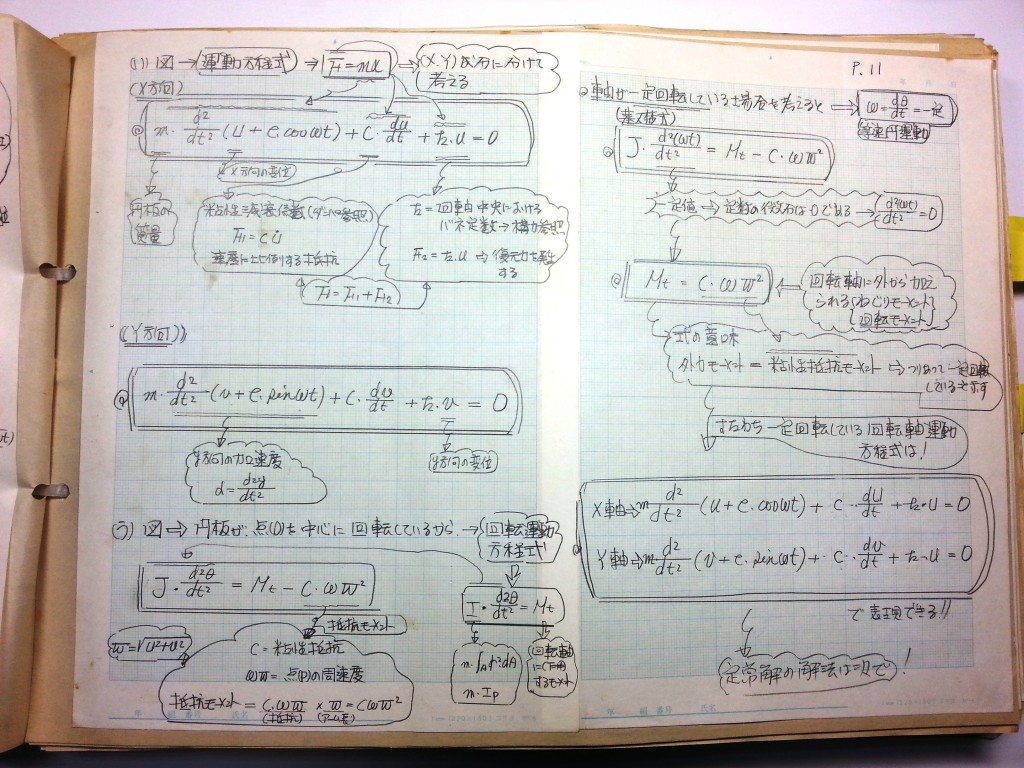 (1) 図 → 運動方程式 → F = mα → (X,Y)成分に分けて
考える
(X方向)
m・d²/dt²(u + e.cosωt) + C・du/dt + k.u = 0
X方向の変位
円板の
質量
粘性減衰係数(ダンパー参照)
F₁ = cu̇
速度に比例する抵抗
k = 回転軸中央における
バネ定数 → 構力参照
F₂ = k.u → 復元力を
する
F = F₁ + F₂
(Y方向)
m・d²/dt²(v + e.sinωt) + C・dv/dt + k.v = 0
y方向の加速度
α = d²y/dt²
y方向の変位
図 ⇒ 円板が点(O)を中心に回転しているから →
回転運動
方程式!
J・d²θ/dt² = Mt − C.ωw²
抵抗モーメント
I・d²θ/dt² = Mt
w = √u²+v²
C = 粘性抵抗
ωw = 点(P)の周速度
抵抗モーメント = C.ωw × w = Cωw²
(抵抗) (アーム長)
m・∫A r²dA
m・Ip
回転軸
に作用
するモーメント
P.11
車軸が一定回転している場合を考えると ⇒ ω = dθ/dt = 一定
等速円運動
(基本式)
J・d²(ωt)/dt² = Mt − C・ωw²
一定値 → 定数の微分は0である → d²(ωt)/dt² = 0
Mt = C・ωw²
回転軸に外から加え
られる(ねじりモーメント)
回転モーメント
式の意味
外力モーメント = 粘性抵抗モーメント → つりあって一定回転
している と示す
すなわち一定回転している回転軸運動
方程式は!
X軸 ⇒ m d²/dt²(u + e.cosωt) + C・du/dt + k・u = 0
Y軸 ⇒ m d²/dt²(v + e.sinωt) + C・dv/dt + k.u = 0
で表現できる!!
定常解の解法は次で!
年 組 番号 氏名
年 組 番号 氏名